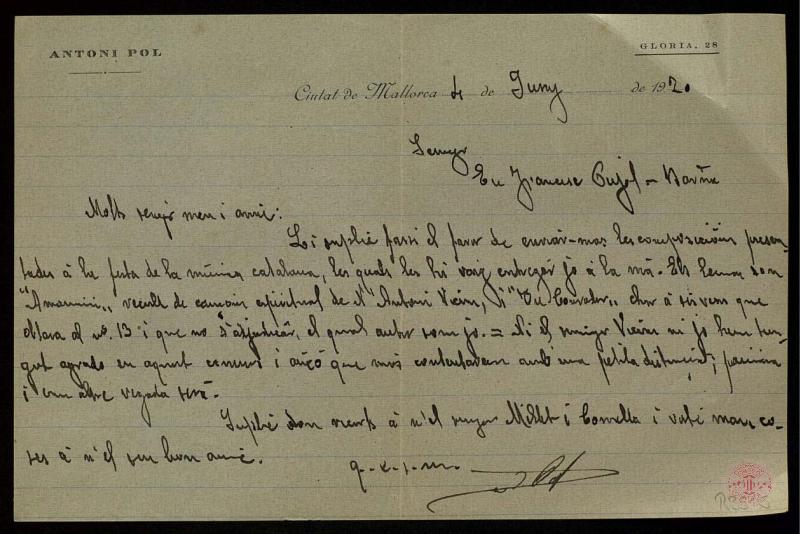 ANTONI POL
GLORIA, 28
Ciutat de Mallorca 4 de Juny de 1920
Senyor
En Francesc Pujol = Barña
Molt senyor meu i amic:
Li suplic fassi el favor de enviar-mos les composicions presen-
tades à la festa de la música catalana, les quals les hi vaig entregar jo à la mà. Els lemas son
"Amunm", recull de cançons espiritual de N'Antoni Vicens, i "Un Conrador" chor à sis veus que
estava al nº 13 i que no s'adjudicá, el qual autor som jo. = Ni el senyor Vicens ni jo hem tin-
gut agrado en aquest concurs i aixó que mos contentavem amb una petita distinció; paciencia
i una altre vegada será.
Suplic don recorts à n'el senyor Millet i Comella i vosté man co-
ses à n'el seu bon amic.
q. e. s. m.